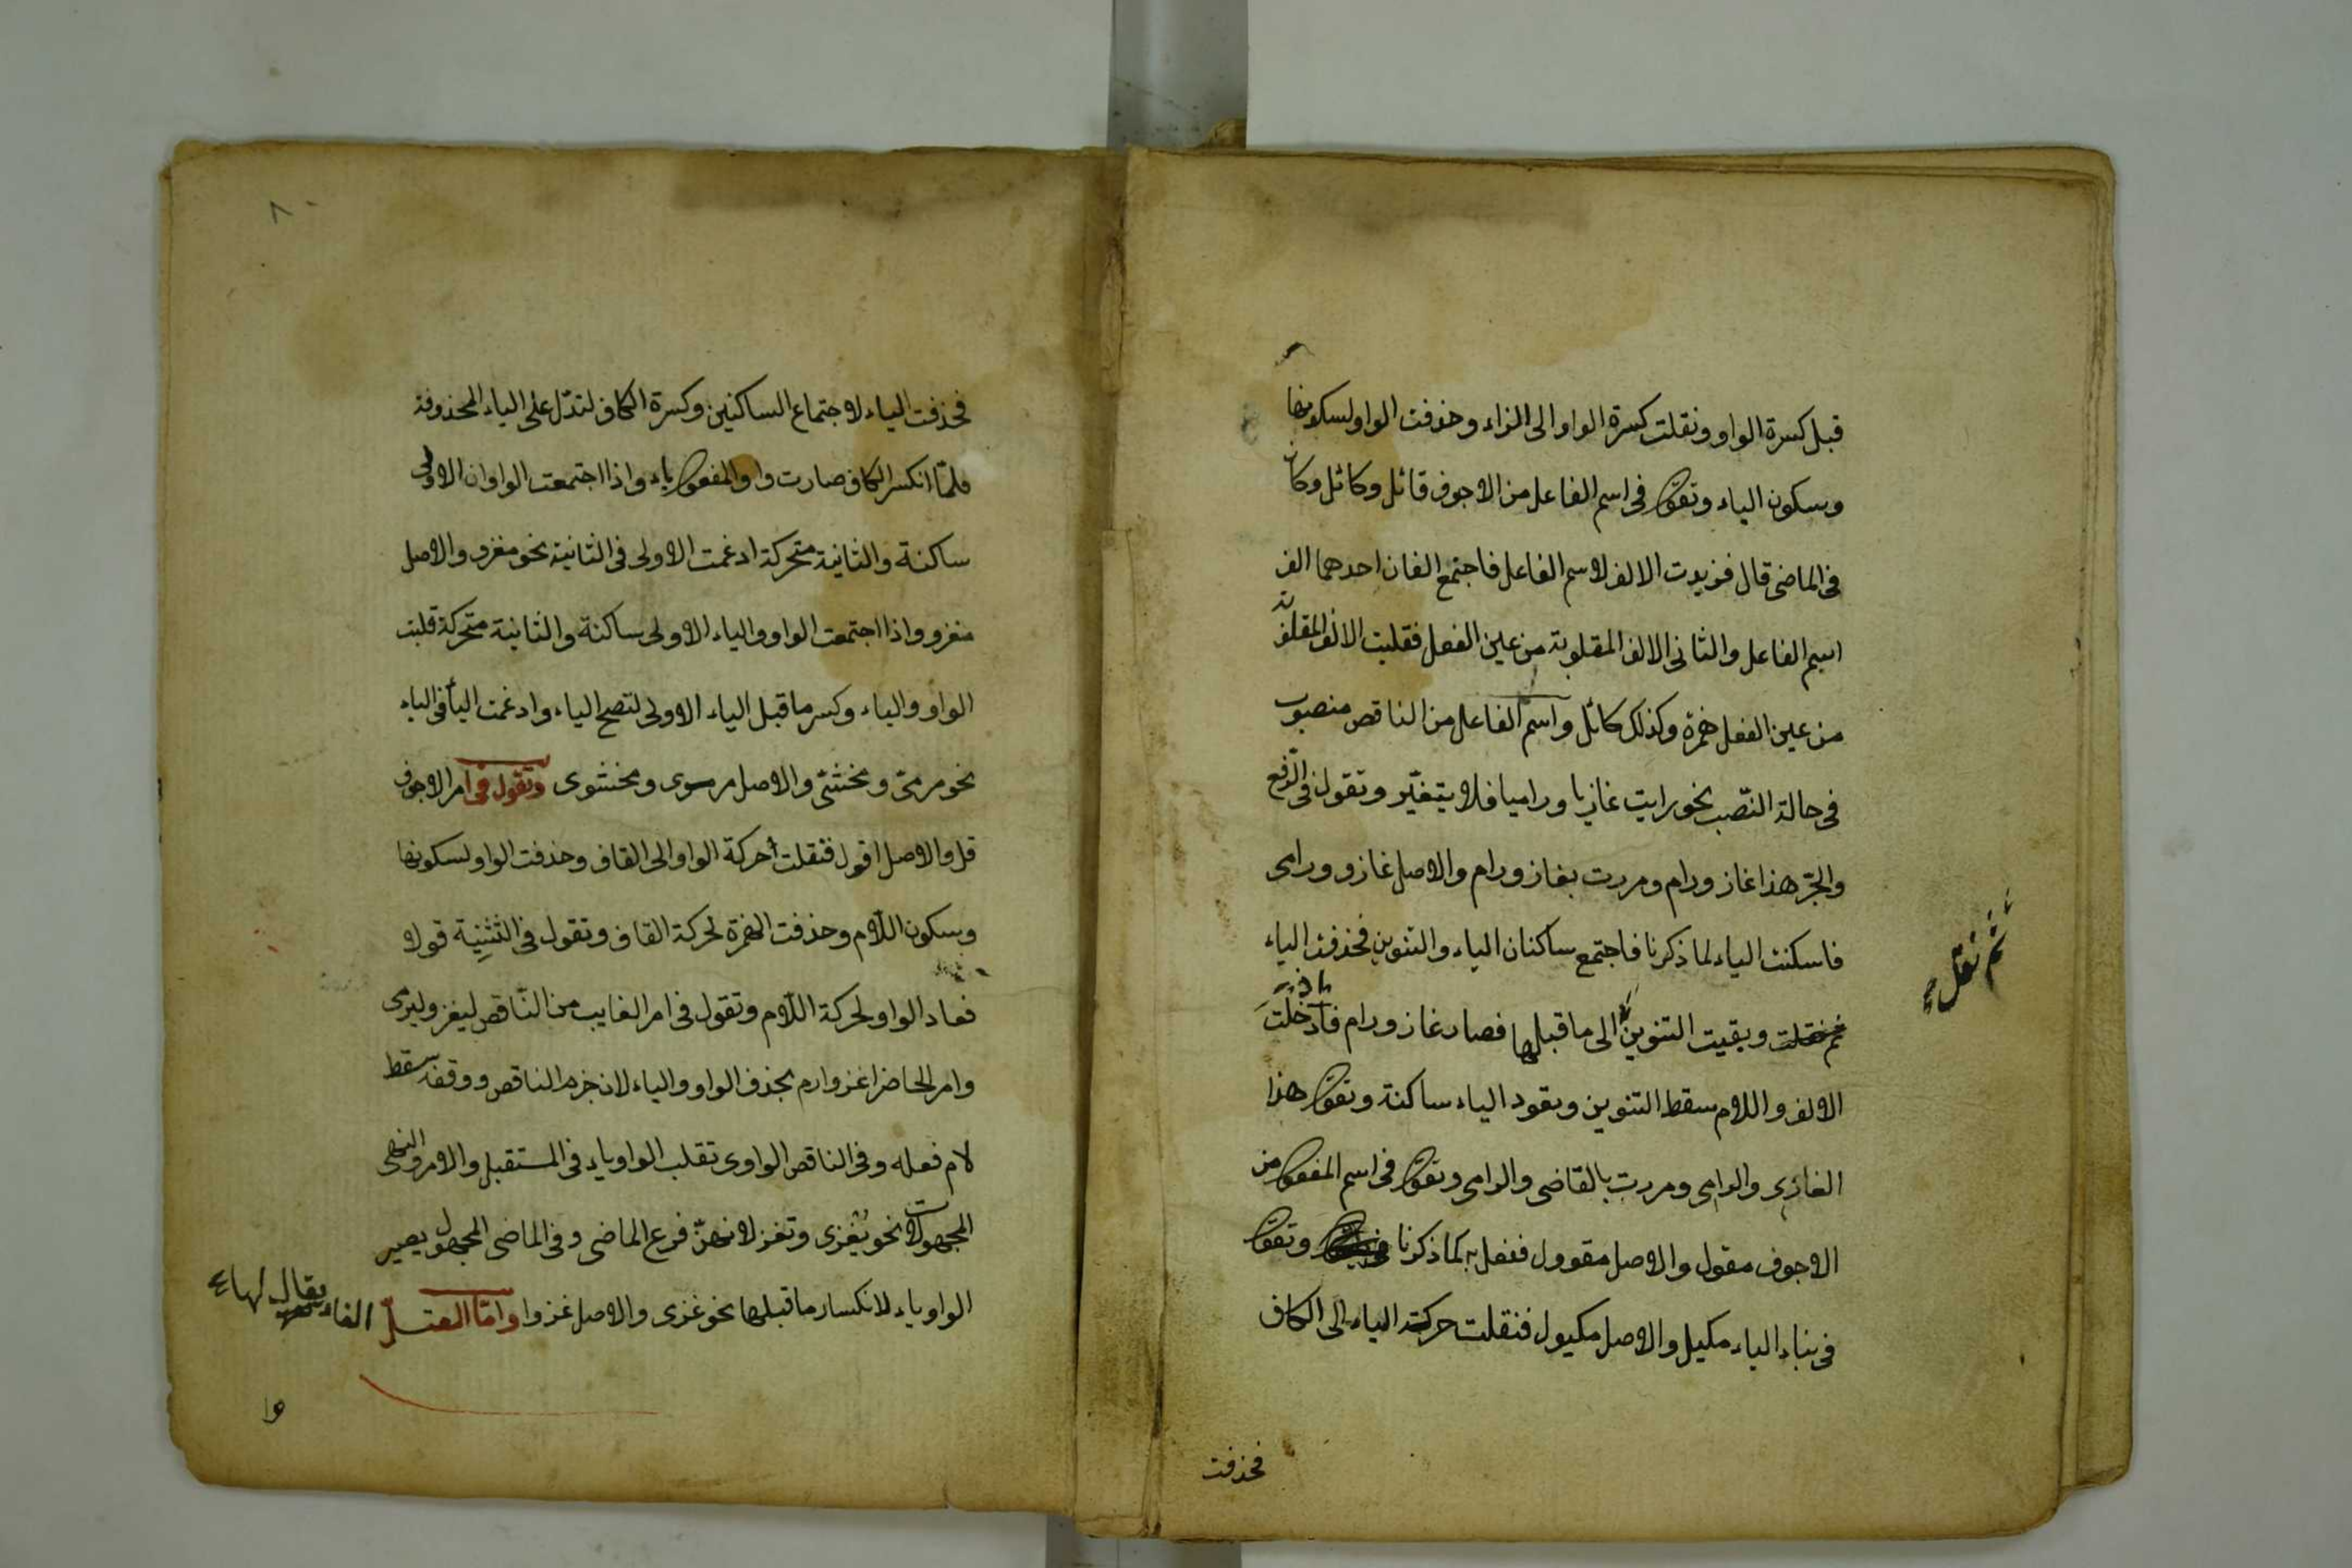 قبل كسرة الواو ونقلت كسرة الواو الى الزاء وحذفت الواو لسكونها
وسكون الياء وتقول فى اسم الفاعل من الاجوف قائل وكائل وكان
فى الماضى قال فزيدت الالف لاسم الفاعل فاجتمع الفان احدهما الف
اسم الفاعل والثانى الالف المقلوبة من عين الفعل فقلبت الالف المقلوبة
من عين الفعل همزة وكذلك كائل واسم الفاعل من الناقص منصوب
فى حالة النّصب نحو رايت غازيا وراميا فلا يتغيّر وتقول فى الرّفع
والجرّ هذا غاز ورام ومررت بغاز ورام والاصل غازو ورامى
فاسكنت الياء لما ذكرنا فاجتمع ساكنان الياء والتنوين فحذفت الياء
ثم نقلت وبقيت التنوين الى ما قبلها فصار غاز ورام فاذا ادخلت
ثم نقل
الالف واللام سقط التنوين وتعود الياء ساكنة وتقول هذا
الغازى والرامى ومررت بالقاضى والرامى وتقول فى اسم المفعول من
الاجوف مقول والاصل مقوول ففعل به كما ذكرنا وتقول
فى بناء الياء مكيل والاصل مكيول فنقلت حركة الياء الى الكاف
فحذفت
٨
فحذفت الياء لاجتماع الساكنين وكسرة الكاف لتدلّ على الياء المحذوفة
فلمّا انكسر الكاف صارت واو المفعول ياء واذا اجتمعت الواوان الاولى
ساكنة والثانية متحركة ادغمت الاولى فى الثانية نحو مغزو والاصل
مغزوو واذا اجتمعت الواو والياء الاولى ساكنة والثانية متحركة قلبت
الواو والياء وكسر ما قبل الياء الاولى لتصح الياء وادغمت اليأ فى الياء
نحو مرمىّ ومخشىّ والاصل مرموى ومخشوى وتقول فى امر الاجوف
قل والاصل اقول فنقلت حركة الواو الى القاف وحذفت الواو لسكونها
وسكون اللّام وحذفت الهمزة لحركة القاف وتقول فى التثنية قولا
فعاد الواو لحركة اللّام وتقول فى امر الغايب من النّاقص ليغز وليرمى
وامر الحاضر اغز وارم بحذف الواو والياء لان جزم الناقص ووقفه سقط
لام فعله وفى الناقص الواوى تقلب الواو ياء فى المستقبل والامر والنهى
المجهولات نحو يُغزى وتغز لانهنّ فرع الماضى وفى الماضى المجهول يصير
الواو ياء لانكسار ما قبلها نحو غزى والاصل غزوا وامّا المعتلّ الفاء يقال لها